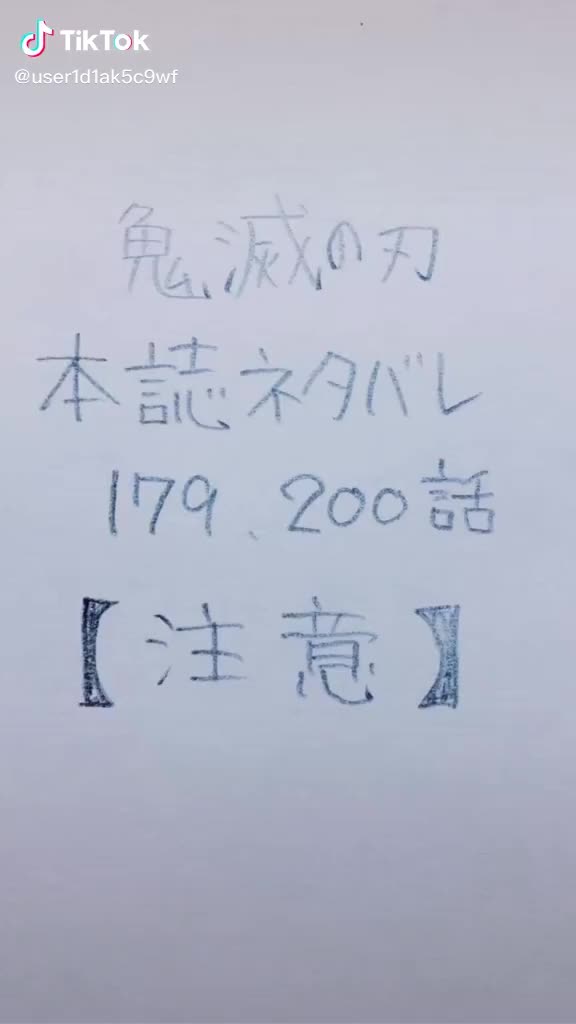 TikTok
@user1d1ak5c9wf
鬼滅の刃
本誌ネタバレ
179、200話
【注意】